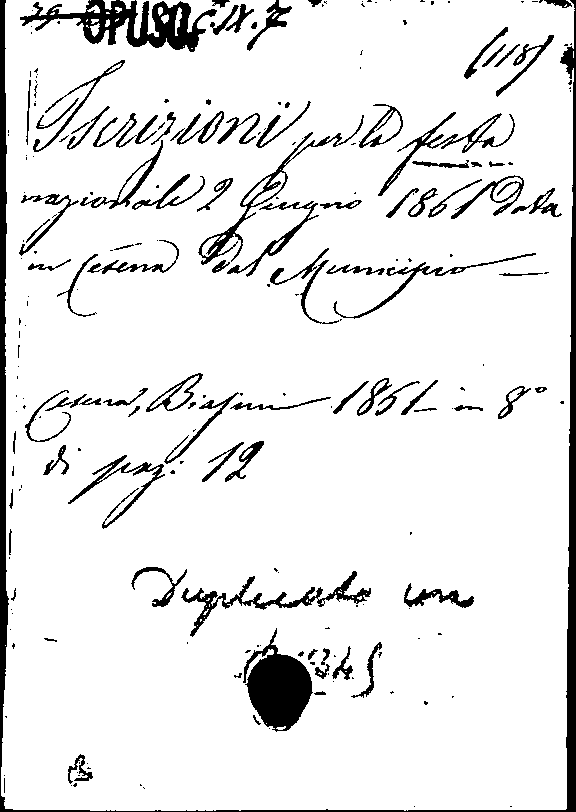 OPUSC. C. IX. 7
(118)
Iscrizioni per la festa
nazionale 2 Giugno 1861 data
in Cesena dal Municipio —
Cesena, Biasini 1861 — in 8°
di pag: 12
Duplicato in